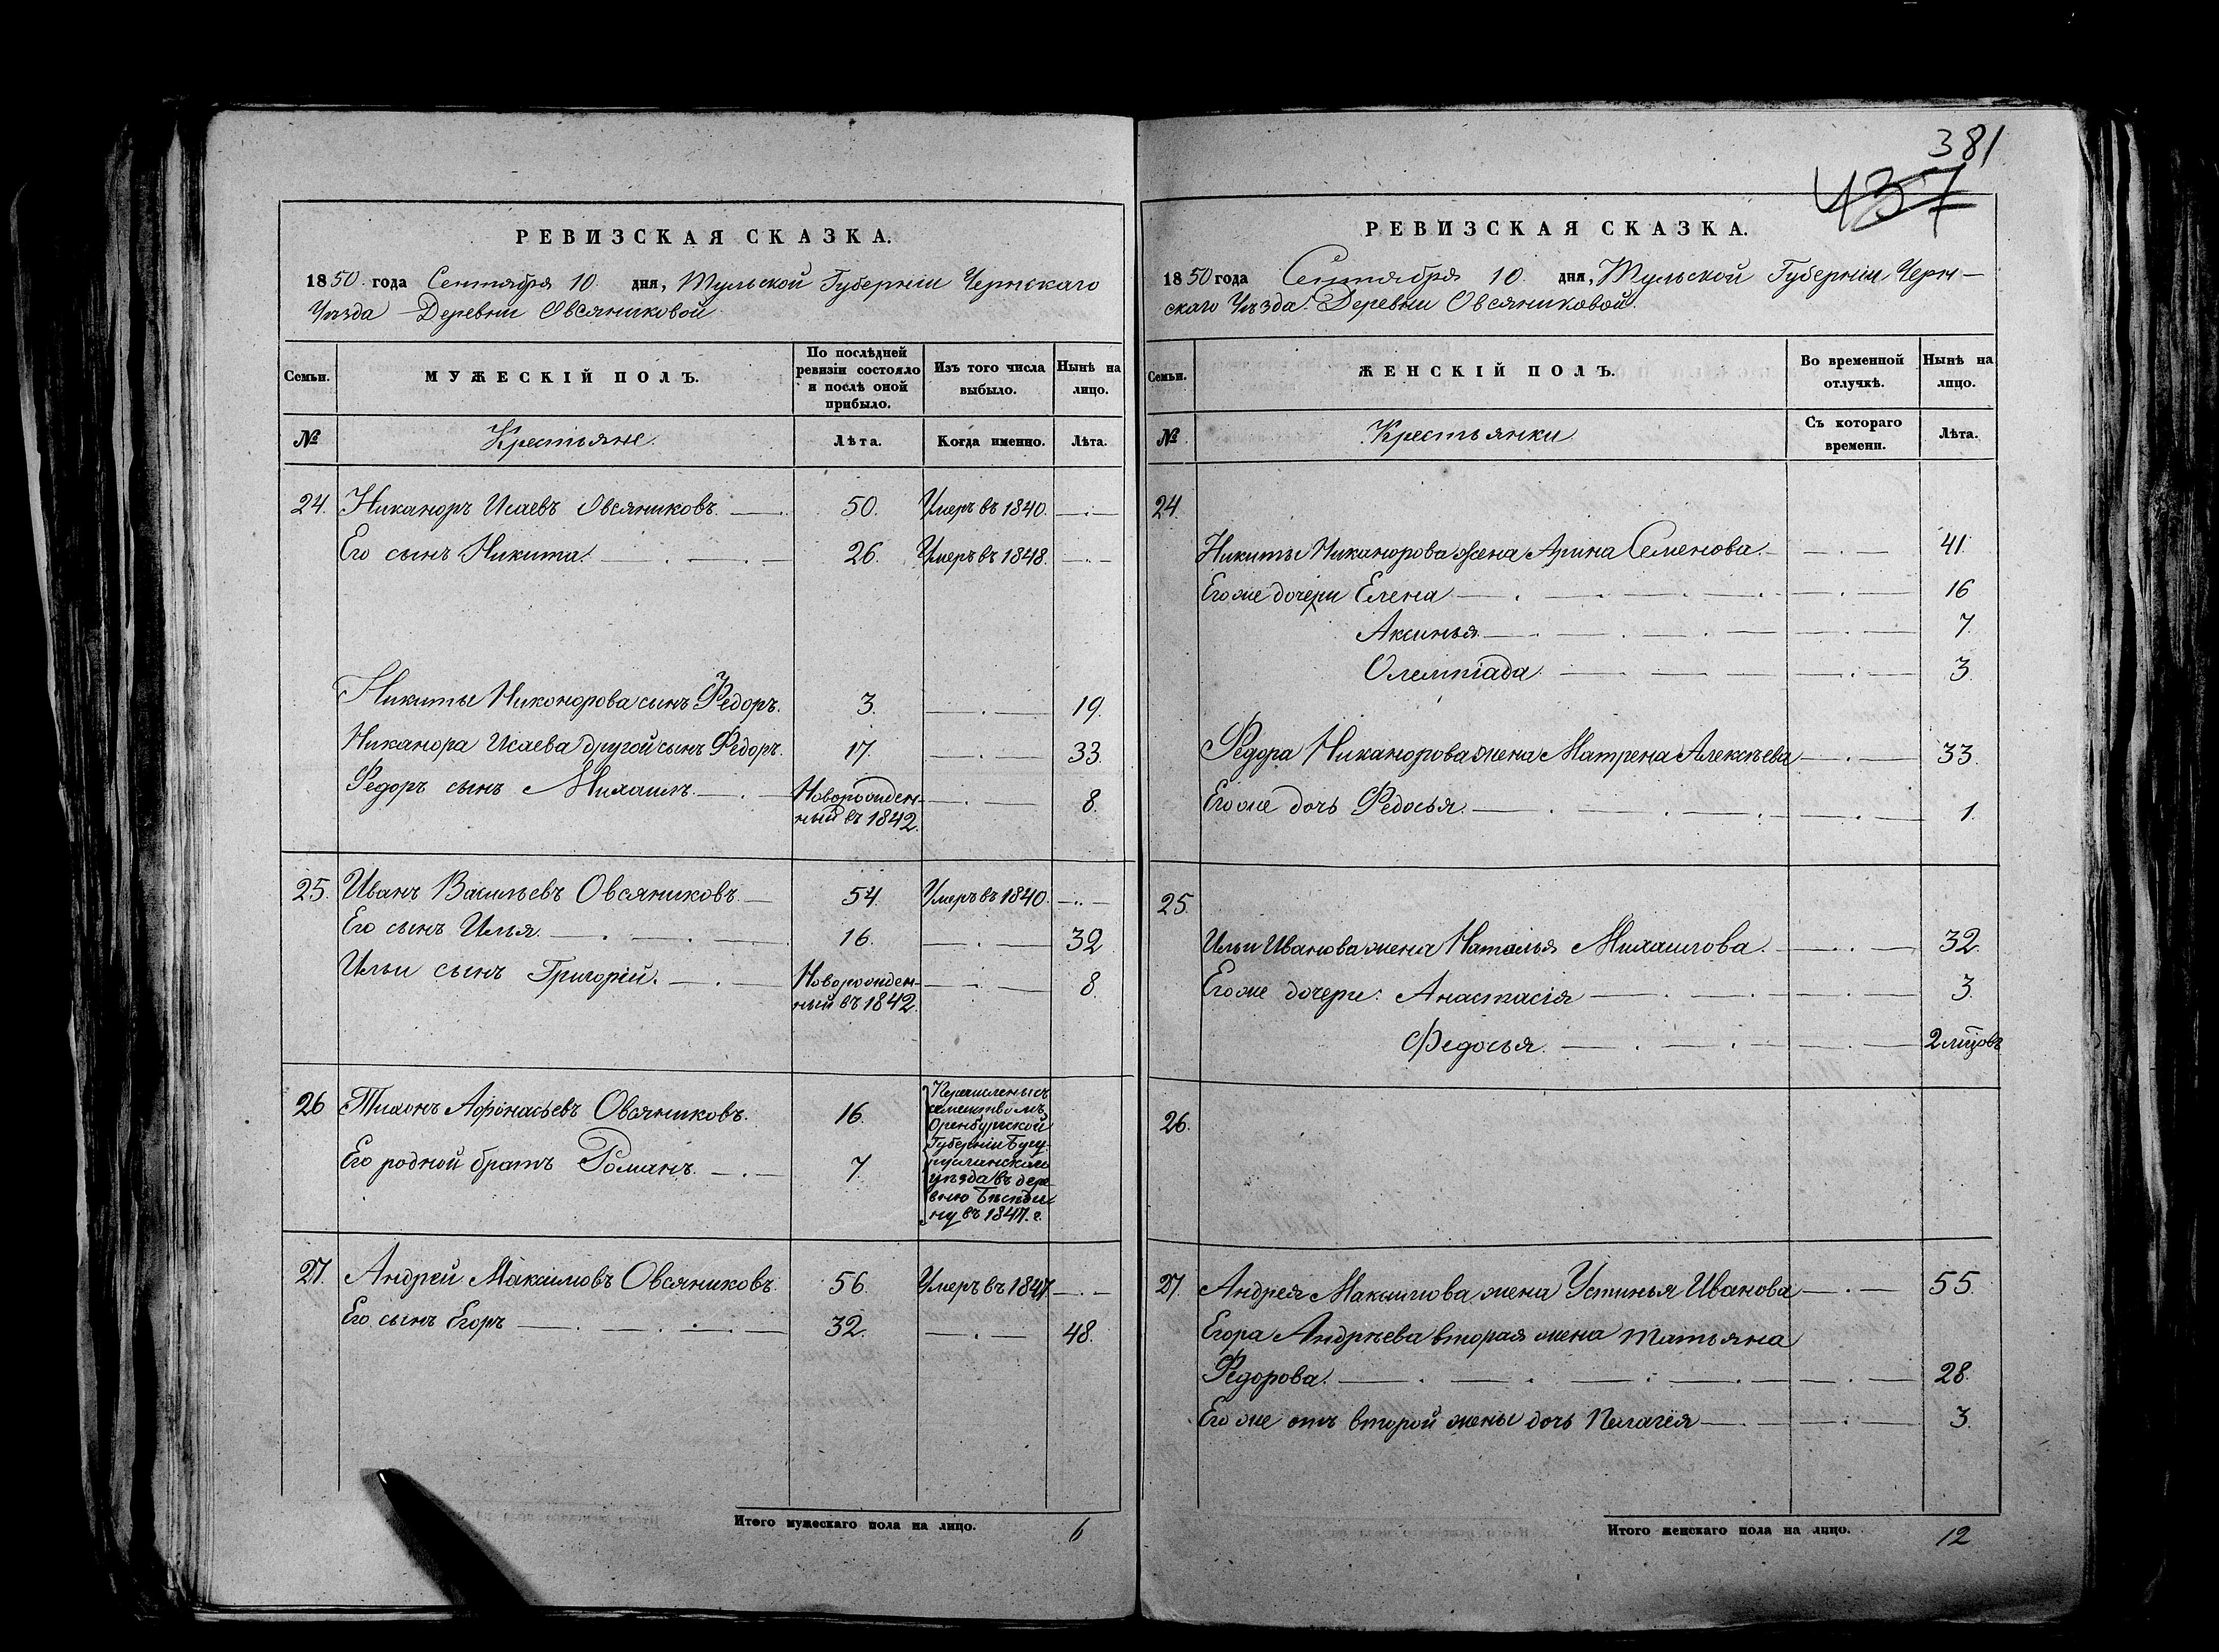 РЕВИЗСКАЯ СКАЗКА.
1850 года Сентября 10 дня, Тульской Губерніи Чернскаго
Уѣзда Деревни Овсяниковой
Семьи.
МУЖЕСКІЙ ПОЛЪ.
По послѣдней ревизіи состояло и послѣ оной прибыло.
Изъ того числа выбыло.
Нынѣ на лицо.
№
Крестьяне.
Лѣта.
Когда именно.
Лѣта.
24. Никаноръ Исаевъ Овсяниковъ. 50. Умеръ въ 1840.
Его сынъ Никита. 26. Умеръ въ 1848.
Никиты Никонорова сынъ Федоръ. 3. 19.
Никанора Исаева другой сынъ Федоръ. 17. 33.
Федоръ сынъ Михаилъ. Новорожден- 8.
ный въ 1842.
25. Иванъ Васильевъ Овсяниковъ 54. Умеръ въ 1840.
Его сынъ Илья. 16. 32
Ильи сынъ Григорій. Новорожден- 8.
ный въ 1842.
26 Тихонъ Афонасьевъ Овсяниковъ. 16.
Его родной братъ Романъ. 7.
Перечислены съ
семействомъ
Оренбургской
Губерніи Бугу-
русланскаго
уѣзда въ дер-
вню
ну въ 1847. г.
27. Андрей Максимовъ Овсяниковъ. 56. Умеръ въ 1847
Его сынъ Егоръ 32. 48.
Итого мужескаго пола на лицо. 6
381
437
РЕВИЗСКАЯ СКАЗКА.
1850 года Сентября 10 дня, Тульской Губерніи Черн-
скаго Уѣзда. Деревни Овсяниковой.
Семьи.
ЖЕНСКІЙ ПОЛЪ.
Во временной отлучкѣ.
Нынѣ на лицо.
№
Крестьянки
Съ котораго времени.
Лѣта.
24.
Никиты Никанорова жена Арина Семенова. 41.
Его же дочери Елена 16
Аксинья 7.
Олемпіада 3.
Федора Никанорова жена Матрена Алексѣева 33.
Его же дочь Федосья. 1.
25.
Ильи Иванова жена Наталья Михаилова. 32.
Его же дочери: Анастасія 3.
Федосья. 2
26.
27. Андрея Максимова жена Устинья Иванова 55.
Егора Андрѣева вторая жена Татьяна
Федорова. 28.
Его же отъ второй жены дочь Пелагея 3.
Итого женскаго пола на лицо. 12